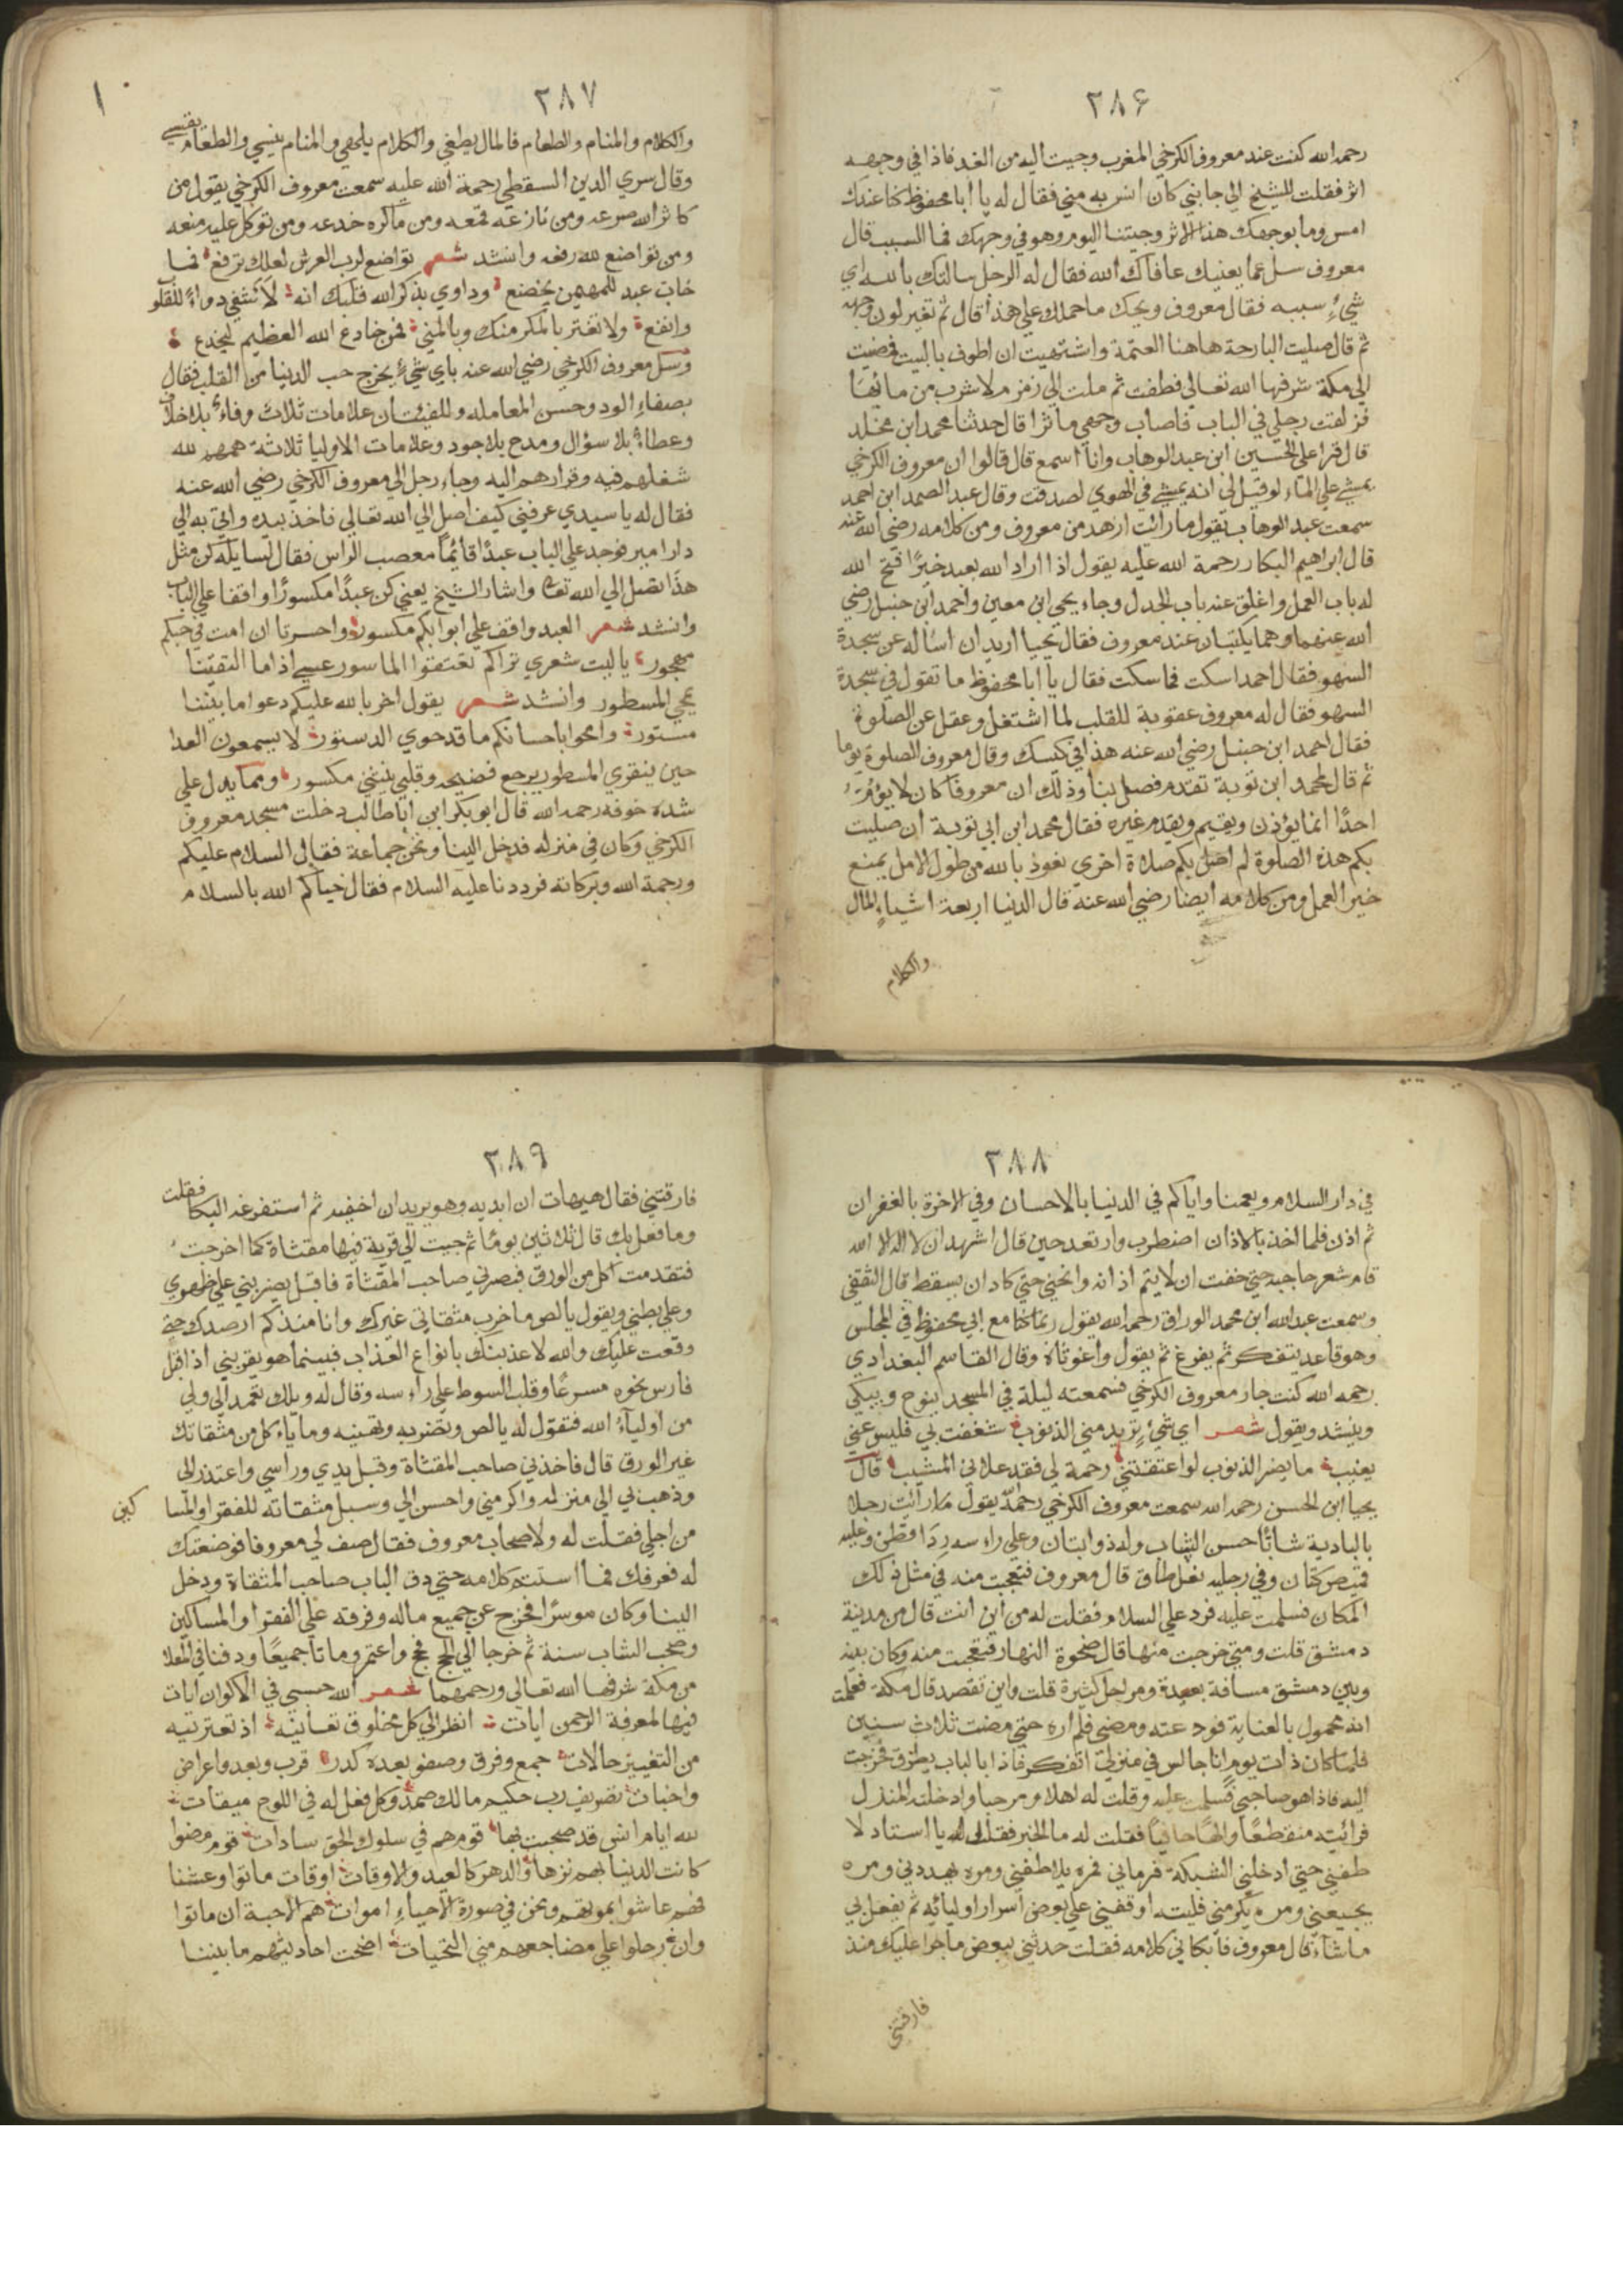 ٢٨٦
رحمه الله كنت عند معروف الكرخي المغرب وجيت اليه من الغد فاذا في وجهه
اثر فقلت للشيخ الي جانبي كان انس به مني فقال له يا ابا محفوظ كنا عندك
امس وما بوجهك هذا الاثر وجيتنا اليوم وهو في وجهك فما السبب قال
معروف سل عما يعنيك عافاك الله فقال له الرجل سالتك بالله اي
شيء سببه فقال معروف ويحك ما حملك علي هذا قال ثم تغير لون وجهه
ثم قال صليت البارحة هاهنا العتمة واشتهيت ان اطوف بالبيت فمضيت
الي مكة شرفها الله تعالي فطفت ثم ملت الي زمزم لاشرب من مائها
فزلقت رجلي في الباب فاصاب وجهي ما ترا قال حدثنا محمد ابن مخلد
قال قرا علي الحسين ابن عبد الوهاب وانا اسمع قال قالوا ان معروف الكرخي
يمشي علي الماء لو قيل لي انه يمشي في الهوي لصدقت وقال عبد الصمد ابن احمد
سمعت عبد الوهاب يقول ما رائت ازهد من معروف ومن كلامه رضي الله عنه
قال ابراهيم البكار رحمة الله عليه يقول اذا اراد الله بعبد خيرًا فتح الله
له باب العمل واغلق عنه باب الجدل وجاء يحي ابن معين واحمد ابن حنبل رضي
الله عنهما وهما يكتبان عند معروف فقال يحيا اريد ان اساله عن سجدة
السهو فقال احمد اسكت فما سكت فقال يا ابا محفوظ ما تقول في سجدة
السهو فقال له معروف عقوبة للقلب لما اشتغل وغفل عن الصلوة
فقال احمد ابن حنبل رضي الله عنه هذا في كيسك وقال معروف الصلوة يوما
ثم قال لمحمد ابن توبة تقدم فصل بنا وذلك ان معروفا كان لا يؤم
احدًا انما يؤذن ويقيم ويقدم غيره فقال محمد ابن ابي توبة ان صليت
بكم هذه الصلوة لم اصل بكم صلاة اخري نعوذ بالله من طول الامل يمنع
خير العمل ومن كلامه ايضا رضي الله عنه قال الدنيا اربعة اشياء المال
والكلام
٢٨٧
والكلام والمنام والطعام فالمال يطغي والكلام يلهي والمنام ينسي والطعام يقسي
وقال سري الدين السقطي رحمة الله عليه سمعت معروف الكرخي يقول من
كاثر الله صرعه ومن نازعه قمعه ومن ماكره خدعه ومن توكل عليه منعه
ومن تواضع لله رفعه وانشد شعر تواضع لرب العرش لعلك ترفع فما
خاب عبد للمهيمن يخضع وداوي بذكر الله قلبك انه لاشفي دواء للقلو
وانفع ولا تغتر بالمكر منك وبالمني فمن خادع الله العظيم يخدع
وسئل معروف الكرخي رضي الله عنه باي شيء يخرج حب الدنيا من القلب فقال
بصفاء الود وحسن المعامله وللفتيان علامات ثلاث وفاء بلا خلاف
وعطاء بلا سؤال ومدح بلا جود وعلامات الاوليا ثلاثة همهم لله
شغلهم فيه وقرارهم اليه وجاء رجل الي معروف الكرخي رضي الله عنه
فقال له يا سيدي عرفني كيف اصل الي الله تعالي فاخذ بيده واتي به الي
دار امير فوجد علي الباب عبدًا قائمًا معصب الراس فقال لسايله كن مثل
هذا تصل الي الله تعا واشار الشيخ يعني كن عبدًا مكسورًا واقفا علي الباب
وانشد شعر العبد واقف علي ابوابكم مكسور واحسرتا ان امت في حبكم
مهجور يا ليت شعري تراكم تعتقوا الماسور عسي اذا ما التقينا
يمحي المسطور وانشد شعر يقول اخر بالله عليكم دعوا ما بيننا
مستور وامحوا باحسانكم ما قد حوي الدستور لا يسمعون العدا
حين ينقري المسطور يرجع فضيحه وقلبي ينثني مكسور ومما يدل علي
شدة خوفه رحمه الله قال ابو بكر ابن ابا طالب دخلت مسجد معروف
الكرخي وكان في منزله فدخل الينا ونحن جماعة فقال السلام عليكم
ورحمة الله وبركاته فرددنا عليه السلام فقال حياكم الله بالسلام
٢٨٨
في دار السلام ويعمنا واياكم في الدنيا بالاحسان وفي الاخرة بالغفران
ثم اذن فلما اخذ بالاذان اضطرب وارتعد حين قال اشهد ان لا اله الا الله
قام شعر حاجبيه حتي خفت ان لا يتم اذانه وانحني حتي كاد ان يسقط قال الثقفي
وسمعت عبد الله ابن محمد الوراق رحمه الله يقول ربما كنا مع ابي محفوظ في المجلس
وهو قاعد يتفكر ثم يفزع ثم يقول واغوثاه وقال القاسم البغدادي
رحمه الله كنت جار معروف الكرخي فسمعته ليلة في المسجد ينوح ويبكي
وينشد ويقول شعر اي شيء تريد مني الذنوب شغفت بي فليس عني
يغيب ما يضر الذنوب لو اعتقتني رحمة لي فقد علاني المشيب قال
يحيا ابن الحسن رحمه الله سمعت معروف الكرخي رحمه الله يقول ما رائت رجلا
بالبادية شابًا حسن الشباب وله ذوابتان وعلي راسه ردا وقطن وعليه
قميص كتان وفي رجليه نعل طاق قال معروف فتعجبت منه في مثل ذلك
المكان فسلمت عليه فرد علي السلام فقلت له من اين انت قال من مدينة
دمشق قلت ومتي خرجت منها قال ضحوة النهار فتعجبت منه وكان بينه
وبين دمشق مسافة بعيدة ومراحل كثيرة قلت واين تقصد قال مكة فعلمت
انه محمول بالعناية فودعته ومضي فلم اره حتي مضت ثلاث سنين
فلما كان ذات يوم انا جالس في منزلي اتفكر فاذا بالباب يطرق فخرجت
اليه فاذا هو صاحبي فسلمت عليه وقلت له اهلا ومرحبا وادخلته المنزل
فرائيته منقطعًا والهًا حافيًا فقلت له ما الخبر فقال لي يا استاد لا
طفني حتي ادخلني الشبكة فرماني فمره يلاطفني ومره يهددني ومره
يجيعني ومره يكرمني فليته اوقفني علي بعض اسرار اوليائه ثم يفعل بي
ما شاء قال معروف فابكاني كلامه فقلت حدثني ببعض ما جرا عليك منذ
فارقتني
٢٨٩
فارقتني فقال هيهات ان ابديه وهو يريد ان اخفيه ثم استفرغه البكا فقلت
وما فعل بك قال ثلاثين يومًا ثم جيت الي قرية فيها مقثاة كما اخرجت
فتقدمت اكل من الورق فبصرني صاحب المقثاة فاقبل يضربني علي ظهري
وعلي بطني ويقول يا لص ما خرب مقثاتي غيرك وانا منذ كم ارصدك حتي
وقعت عليك والله لاعذبنك بانواع العذاب فبينما هو يضربني اذ اقبل
فارس نحوه مسرعًا وقلب السوط علي راسه وقال له ويلك تعمد الي ولي
من اولياء الله فتقول له يا لص وتضربه وتهينه وما ياكل من مقثاتك
غير الورق قال فاخذني صاحب المقثاة وقبل يدي وراسي واعتذر الي
وذهب بي الي منزله واكرمني واحسن الي وسبل مقثاته للفقرا والمسا كين
من اجلي فقلت له ولاصحاب معروف فقال صف لي معروفا فوضعتك
له فعرفك فما استتم كلامه حتي دق الباب صاحب المقثاة ودخل
الينا وكان موسرًا فخرج عن جميع ماله وفرقه علي الفقرا والمساكين
وصحب الشاب سنة ثم خرجا الي الحج فحج واعتمر وماتا جميعًا ودفنا في المعلا
من مكة شرفها الله تعالي ورحمهما شعر الله حسبي في الاكوان ايات
فيها لمعرفة الرحمن ايات انظر الي كل مخلوق تعاينه اذ تعتريه
من التغيير حالات جمع وفرق وصفو بعده كدر قرب وبعد واعراض
واخبات تصريف رب حكيم مالك صمد وكل فعل له في اللوح ميقات
لله ايام انس قد صحبت بها قوم هم في سلوك الحق سادات قوم مضوا
كانت الدنيا بهم نزها والدهر كالعيد والاوقات اوقات ماتوا وعشنا
فهم عاشوا بموتهم ونحن في صورة الاحياء اموات هم الاحبة ان ماتوا
وان رحلوا علي مضاجعهم مني التحيات اضحت احاديثهم ما بيننا